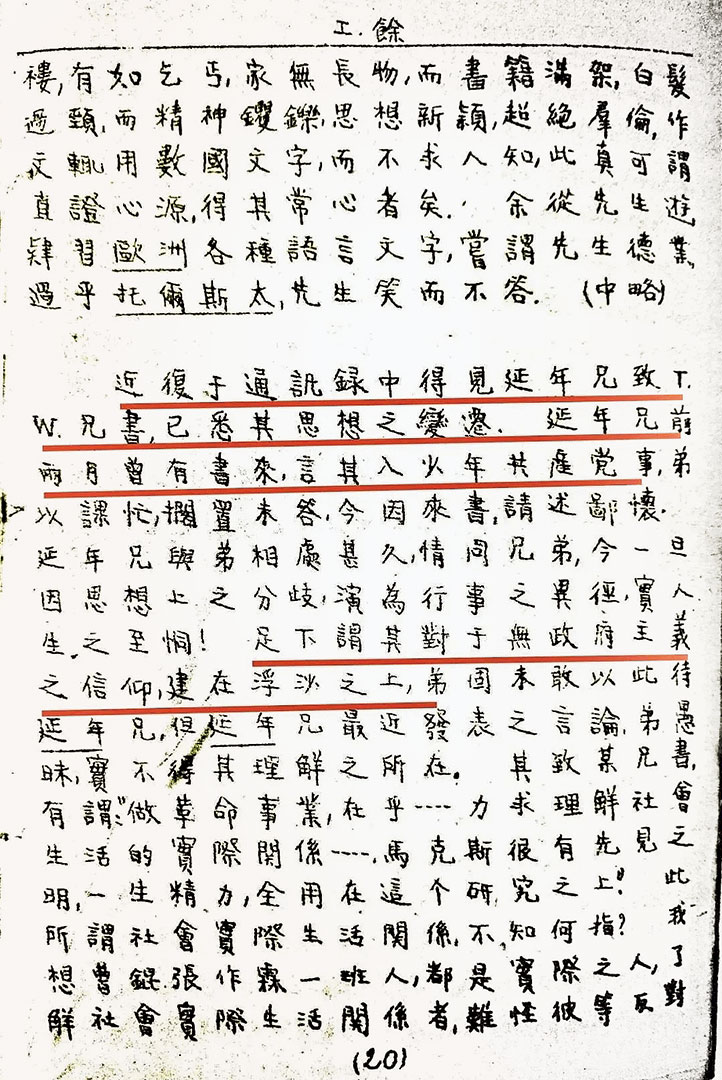 工.餘
褸,有如乞丐,家無長物,而書籍滿架,白髮
過頸,而精神矍鑠,思想新穎,超絕羣倫,作
文輒用數國文字,而不求人知,此真可謂
直證心源,得其常心者矣. 余從先生遊,
肄習歐洲各種語言文字,嘗謂先生德業
過乎托爾斯太,先生笑而不答. (中略)
近復于通訊録中得見延年兄致T.
W.兄書,已悉其思想之變遷. 延年兄前
兩月曾有書來,言其入少年共產党事,弟
以課忙,擱置未答,今因來書,請述鄙懷.
延年兄與弟相處甚久,情同兄弟,今一旦
因思想上之分歧,演為行事之異徑,實人
生之至恫! 足下謂其對于無政府主義
之信仰,建在浮沙之上,弟固未敢以此待
延年兄,但延年兄最近發表之言論,弟愚
昧,實不得其理解之所在。 其致某兄書,
有謂:“做革命事業,在乎----力求理解社會
生活的實際關係----,馬克斯很有先見之
明,一生精力,全用在這个研究之上!”此
所謂社會實際生活關係,不知何指? 我
想曹錕張作霖一班人,都是實際之人,了
解社會實際生活關係者,難怪彼等反對
(20)